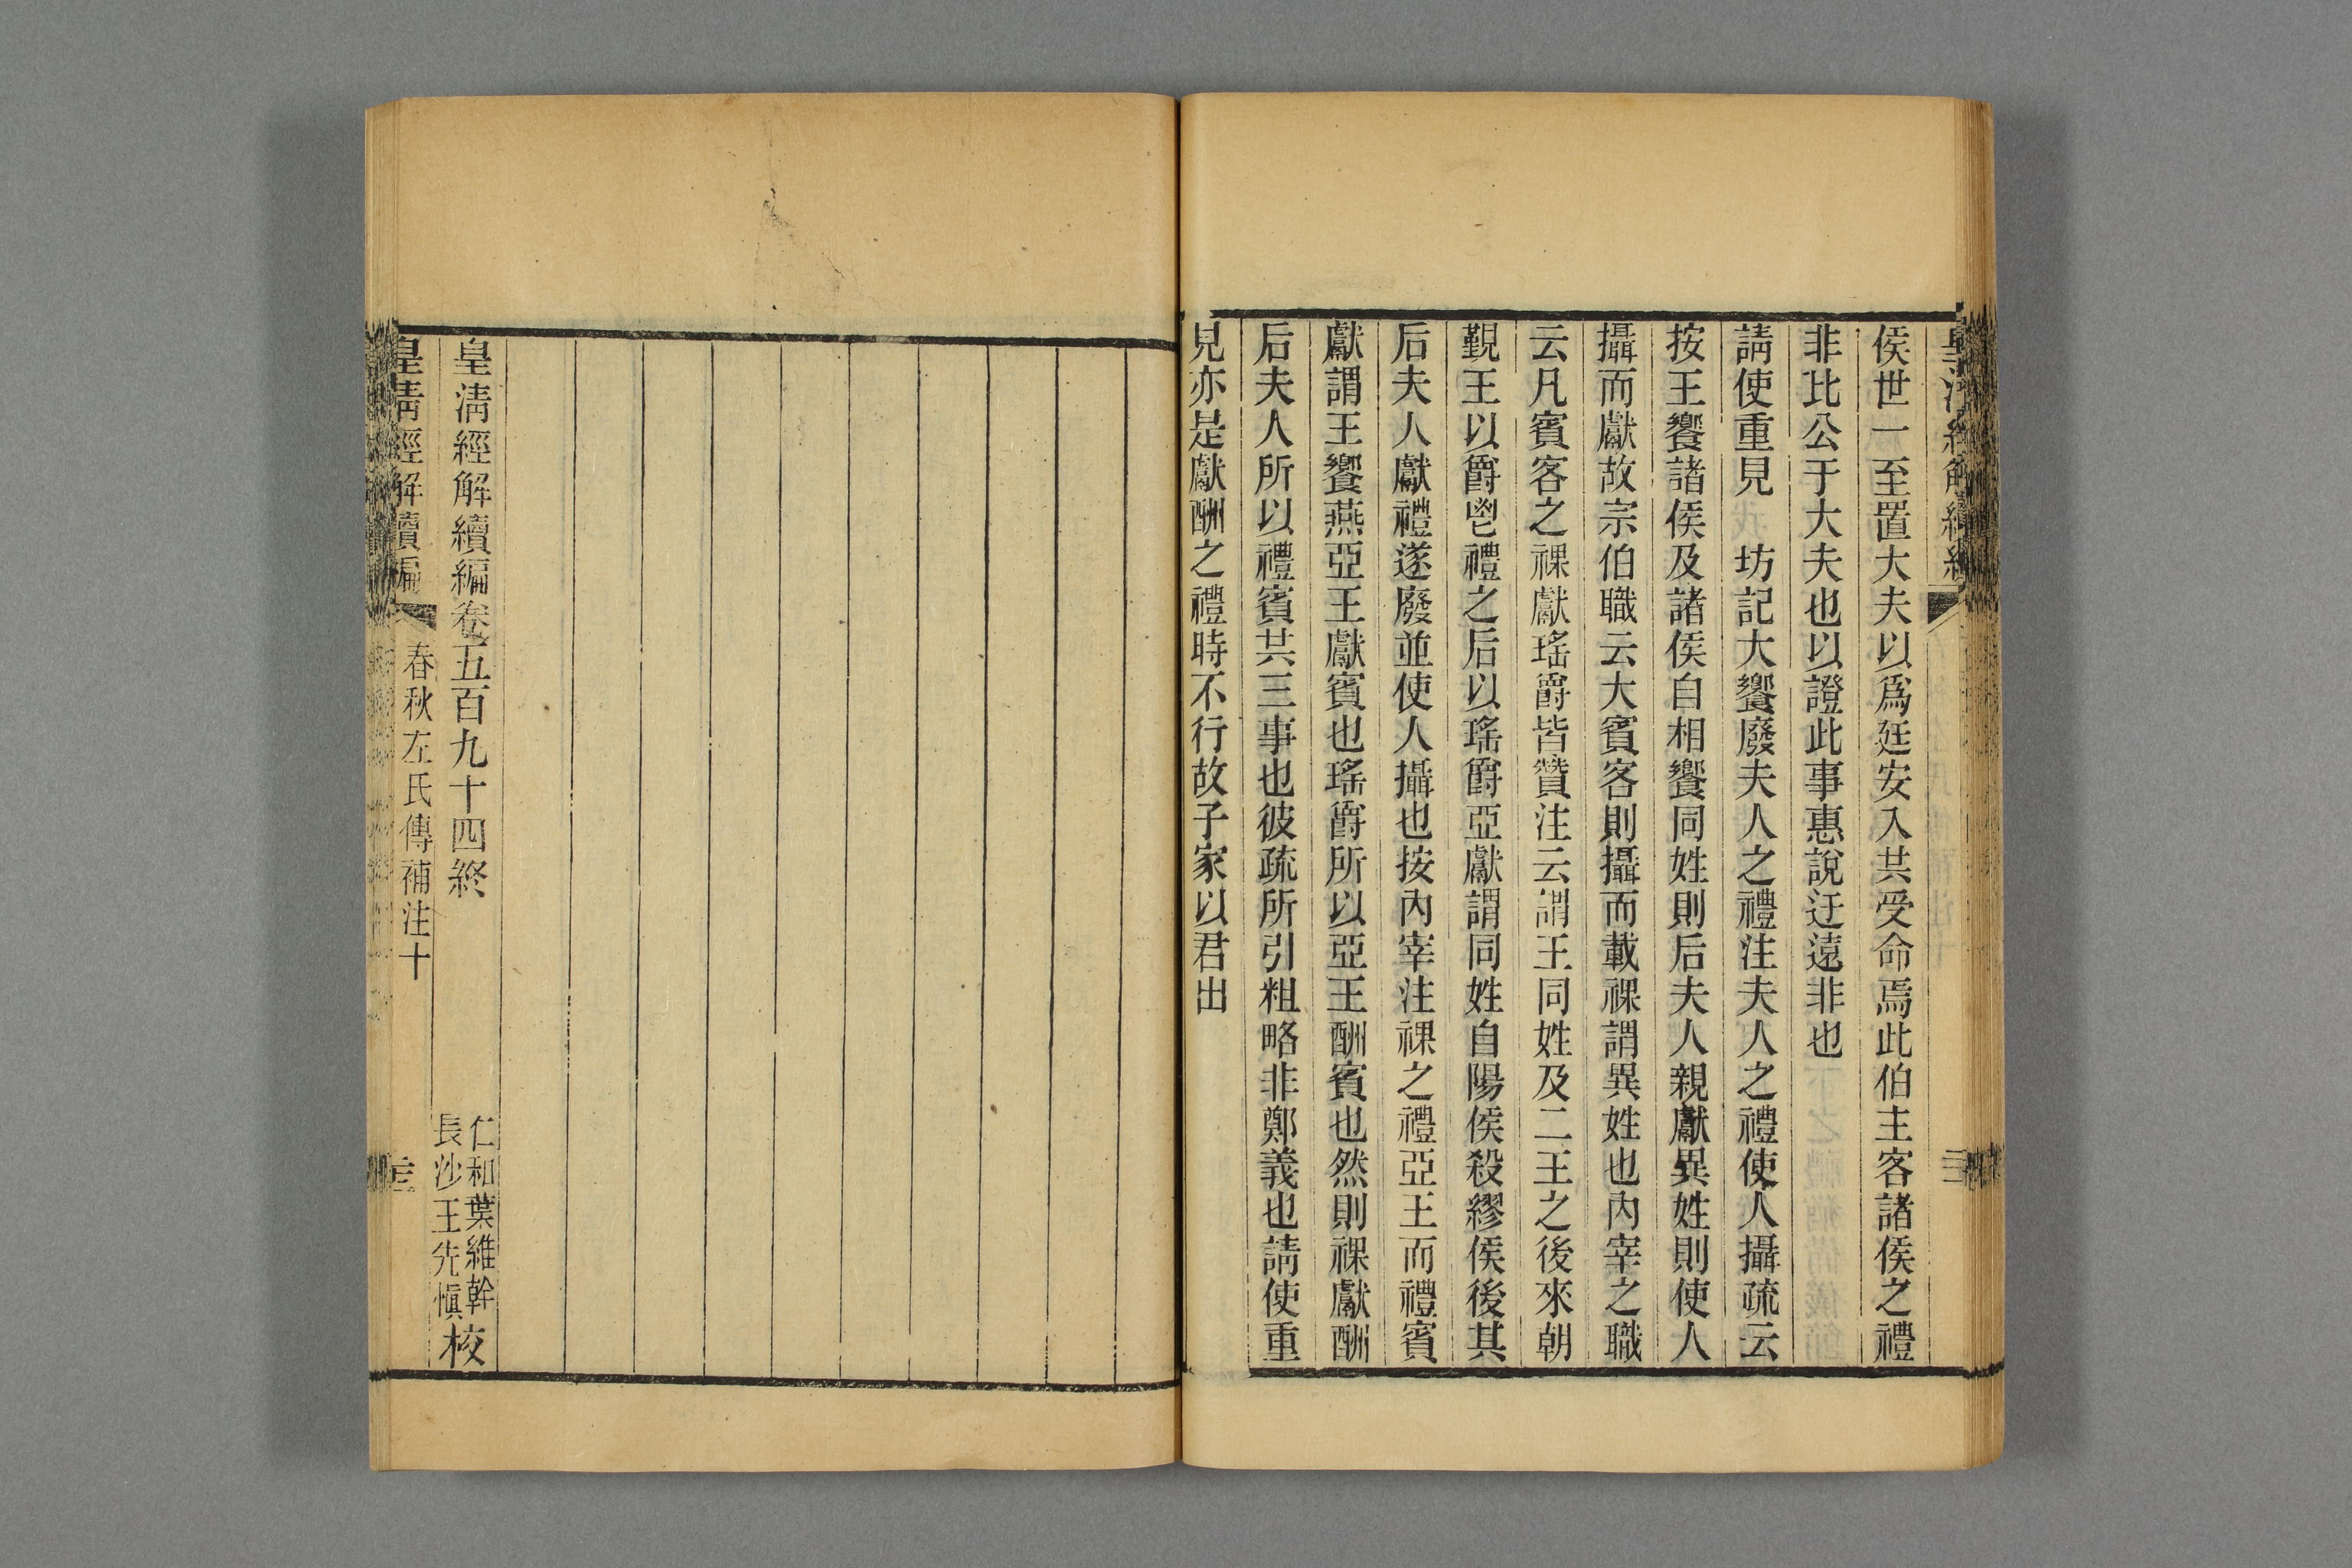 侯世一至置大夫以爲廷安入共受命焉此伯主客諸侯之禮
非比公于大夫也以證此事惠說迂遠非也
請使重見　坊記大饗廢夫人之禮注夫人之禮使人攝疏云
按王饗諸侯及諸侯自相饗同姓則后夫人親獻異姓則使人
攝而獻故宗伯職云大賓客則攝而載祼謂異姓也內宰之職
云凡賓客之祼獻瑤爵皆贊注云謂王同姓及二王之後來朝
覲王以爵鬯禮之后以瑤爵亞獻謂同姓自陽侯殺繆侯後其
后夫人獻禮遂廢並使人攝也按內宰注祼之禮亞王而禮賓
獻謂王饗燕亞王獻賓也瑤爵所以亞王酬賓也然則祼獻酬
后夫人所以禮賓共三事也彼疏所引粗略非鄭義也請使重
見亦是獻酬之禮時不行故子家以君出
皇淸經解續編卷五百九十四終
仁和葉維幹
長沙王先愼
校
皇淸經解續編
春秋左氏傳補注十